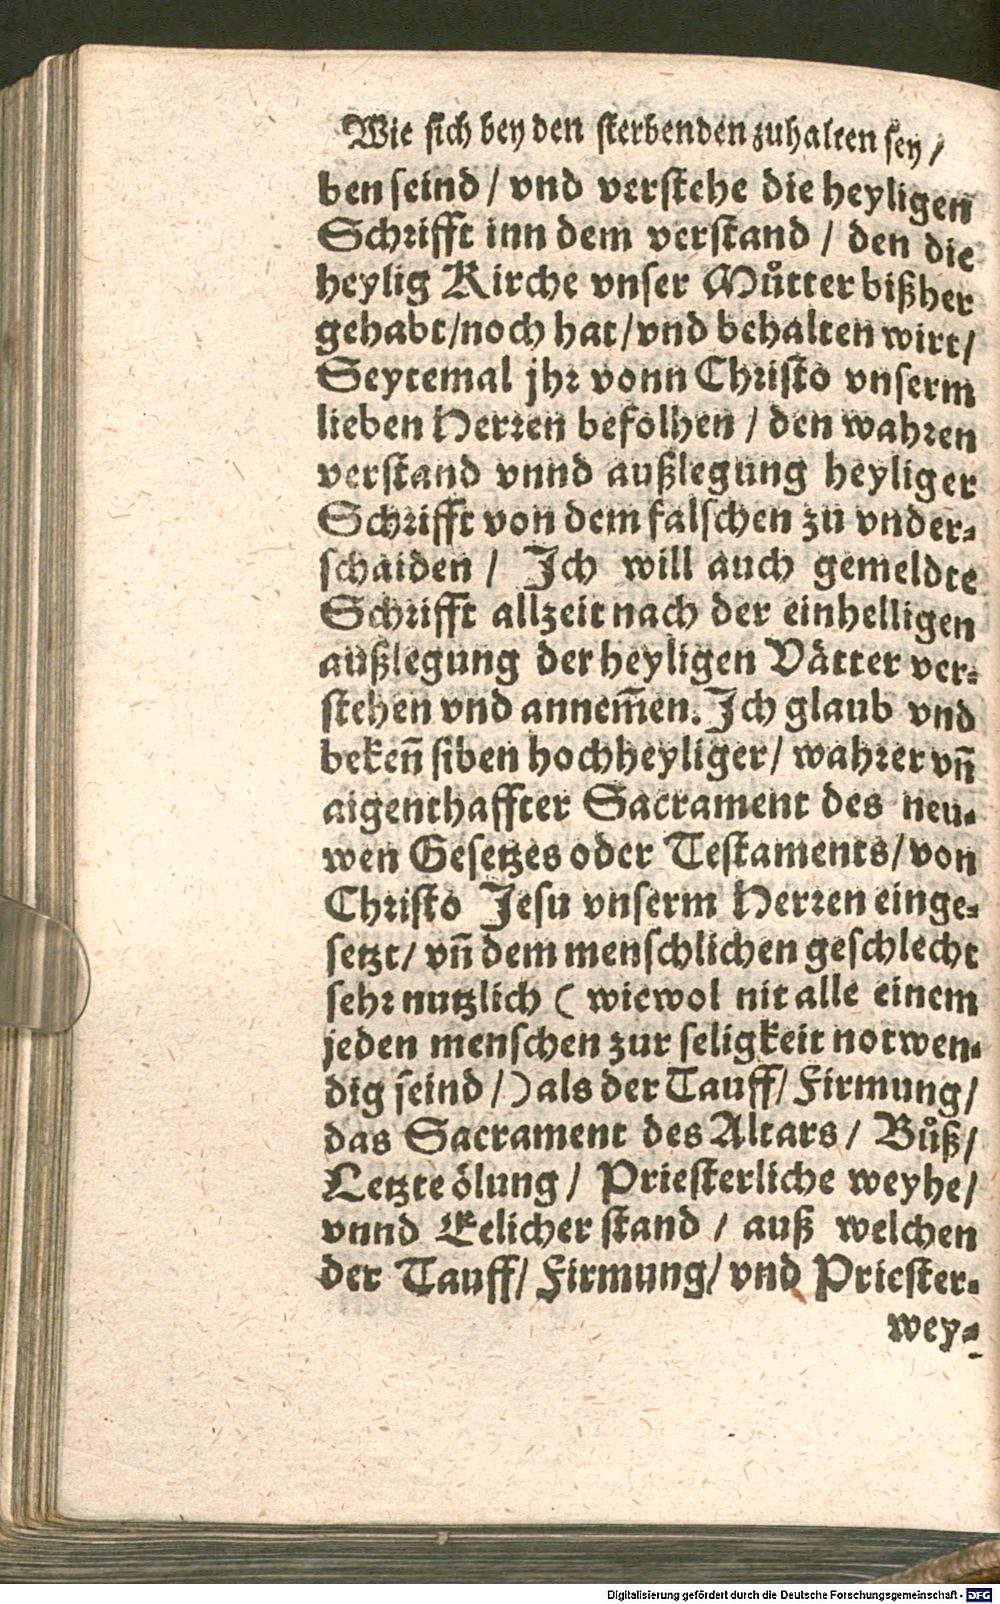 Wie sich bey den sterbenden zuhalten sey /
ben seind / vnd verstehe die heyligen
Schrifft inn dem verstand / den die
heylig Kirche vnser Můtter bißher
gehabt/noch hat/vnd behalten wirt/
Seytemal jhr vonn Christo vnserm
lieben Herren befolhen / den wahren
verstand vnnd außlegung heyliger
Schrifft von dem falschen zu vnder⸗
schaiden / Ich will auch gemeldte
Schrifft allzeit nach der einhelligen
außlegung der heyligen Vätter ver⸗
stehen vnd annem̄en. Ich glaub vnd
beken̄ siben hochheyliger/ wahrer vn̄
aigenthaffter Sacrament des neu⸗
wen Gesetzes oder Testaments/von
Christo Jesu vnserm Herren einge⸗
setzt/ vn̄ dem menschlichen geschlecht
sehr nutzlich ( wiewol nit alle einem
jeden menschen zur seligkeit notwen⸗
dig seind /) als der Tauff/ Firmung/
das Sacrament des Altars / Bůß/
Letzte ölung / Priesterliche weyhe/
vnnd Eelicher stand / auß welchen
der Tauff/ Firmung/ vnd Priester⸗
wey⸗
Digitalisierung gefördert durch die Deutsche Forschungsgemeinschaft - DFG